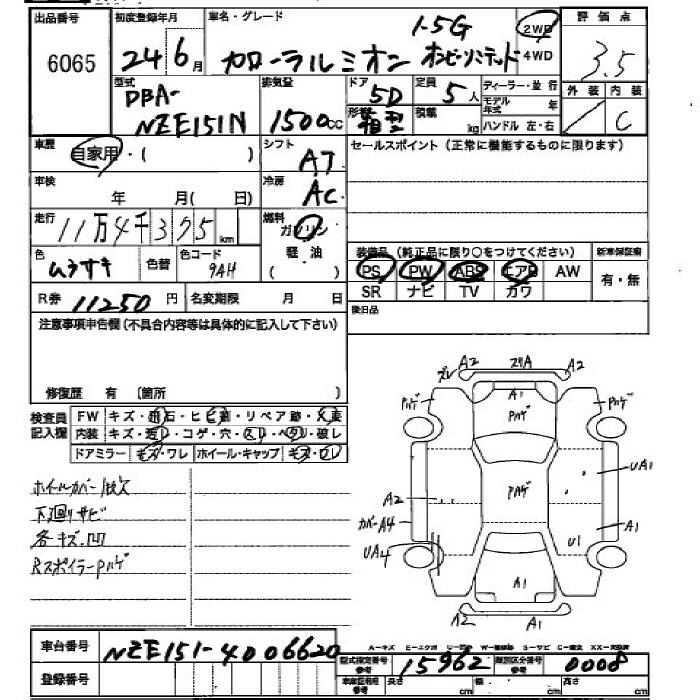 出品番号 初度登録年月 車名・グレード 1-5G 2WD 評価点
6065 24 6月 カローラルミオン オンビーリミテッド 4WD 3.5
型式 排気量 ドア 定員 ディーラー・並行 外装 内装
DBA- 5D 5人 モデル年式 年
NZE151N 1500cc 形状 箱型 積載 kg ハンドル 左・右 C
車歴 自家用・( ) シフト AT セールスポイント(正常に機能するものに限ります)
車検 年 月( 日) 冷房 AC
走行 11万4千375km 燃料 ガソリン
色 ムラサキ 色替 色コード 9AH 軽油 ( ) 装備品(純正品に限り○をつけてください) 新車保証書
PS PW ABS エアB AW 有・無
R券 11250円 名変期限 月 日 SR ナビ TV カワ
注意事項申告欄(不具合内容等は具体的に記入して下さい) 後日品
修復歴 有 〔箇所 〕
検査員記入欄 FW キズ・飛石・ヒビ・リペア跡・
内装 キズ・・コゲ・穴・スレ・ヘタリ・破レ
ドアミラー キズ・ワレ ホイール・キャップ キズ・ワレ
ホイールカバー1枚欠
下廻りサビ
各キズ・凹
RスポイラーPハゲ
A2 ズレ スリA A2
Pハゲ A1 Pハゲ
Pハゲ
UA1
A2 Pハゲ
カバーA4 A1
UA4 U1
A1
A2 A1
車台番号 NZE151-4006620
A-キズ E-エクボ S-サビ C-腐食 XX-交換済
登録番号 型式指定番号 参考 15962 類別区分番号 参考 0008
車庫証明用 参考 長さ cm 幅 cm 高さ cm